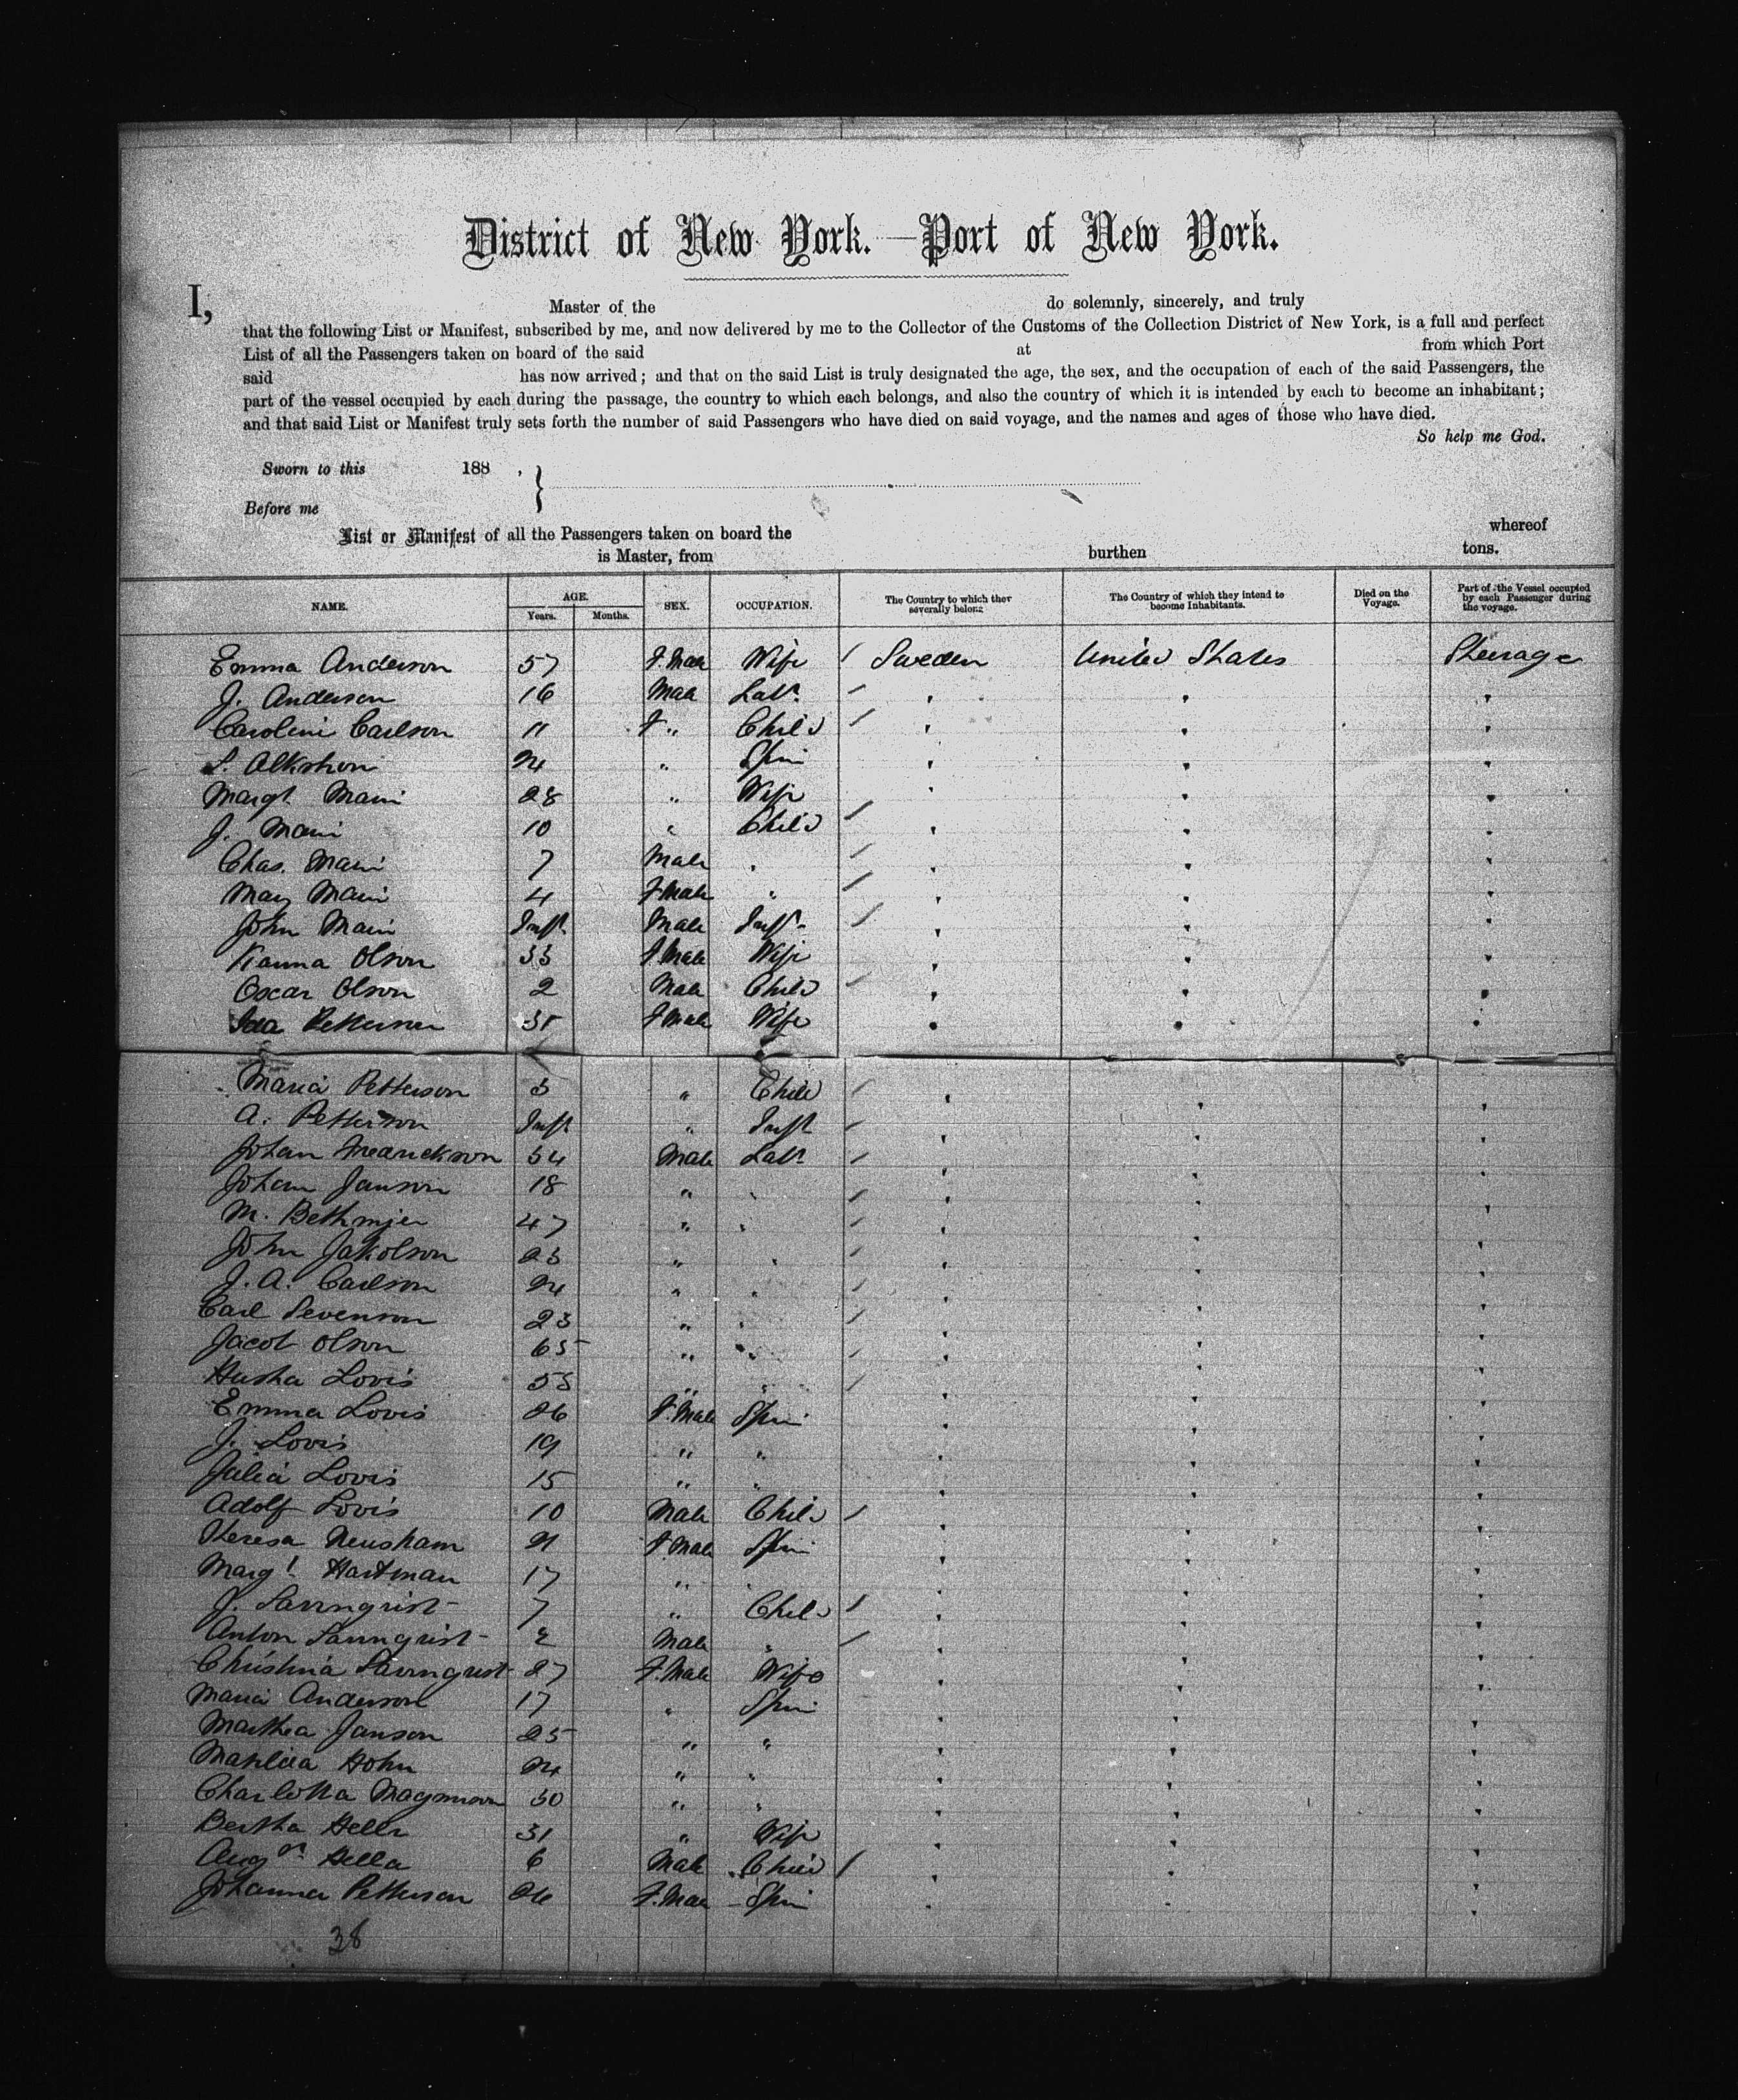 District of New York.—Port of New York.
I, Master of the do solemnly, sincerely, and truly
that the following List or Manifest, subscribed by me, and now delivered by me to the Collector of the Customs of the Collection District of New York, is a full and perfect
List of all the Passengers taken on board of the said at from which Port
said has now arrived; and that on the said List is truly designated the age, the sex, and the occupation of each of the said Passengers, the
part of the vessel occupied by each during the passage, the country to which each belongs, and also the country of which it is intended by each to become an inhabitant;
and that said List or Manifest truly sets forth the number of said Passengers who have died on said voyage, and the names and ages of those who have died.
So help me God.
Sworn to this 188 ,
Before me
List or Manifest of all the Passengers taken on board the whereof
is Master, from burthen tons.
NAME. AGE. Years. Months. SEX. OCCUPATION. The Country to which they severally belong The Country of which they intend to become Inhabitants. Died on the Voyage. Part of the Vessel occupied by each Passenger during the voyage.
Emma Anderson 57 F. Male Wife / Sweden United States Steerage
J. Anderson 16 Male Labr /
Caroline Carlson 11 F " Child /
24 " Spin
Margt. 28 " Wife
J. 10 " Child /
Chas. 7 Male " /
May 4 F Male " /
John Inft Male Inft /
Olson 33 F Male Wife
Oscar Olson 2 Male Child /
Ida Petterson 31 F Male Wife
Maria Petterson 3 " Child /
A. Petterson Inft " Inft /
Johan Fredrickson 54 Male Labr /
Johan Janson 18 " " /
M. 47 " " /
John Jakolson 23 " " /
J. A. Carlson 24 " " /
Carl Svenson 23 " " /
Jacob Olson 65 " " /
Lovis 55 " " /
Emma Lovis 26 F. Male Spin
J. Lovis 19 " "
Julia Lovis 15 " "
Adolf Lovis 10 Male Child /
Theresa Neusham 21 F Male Spin
Margt. Hartman 17 " "
J. 7 " Child /
Anton 2 Male " /
Christina 27 F. Male Wife
Maria Anderson 17 " Spin
Marthea Janson 25 " "
Matilda Hohn 24 " "
Charlotta Magnuson 30 " "
Bertha 31 " Wife
Augst Hella 6 Male Child /
Johanna Petterson 26 F. Male Spin
38